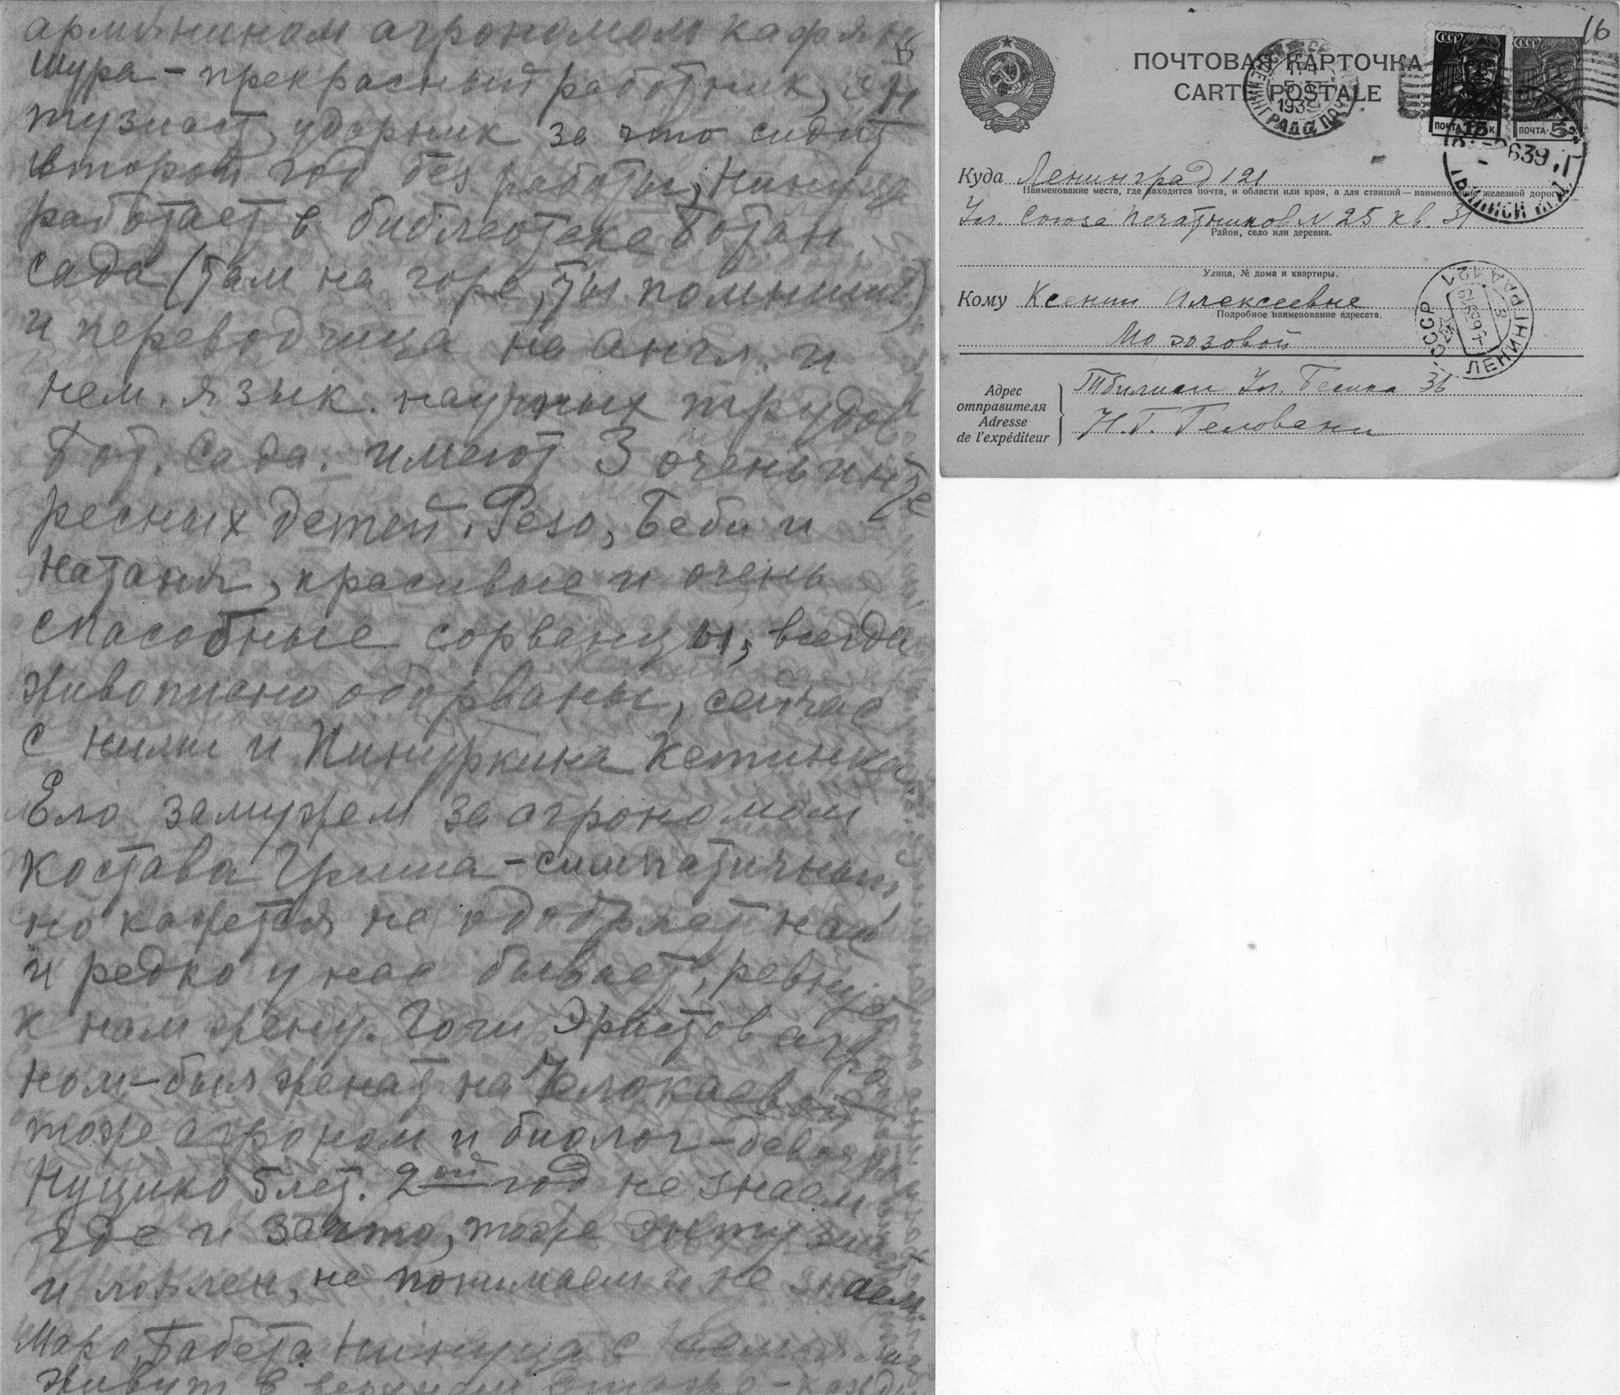 армянином агрономом
Шура – прекрасный работник, эн
тузиаст, ударник за что сидит
второй год без работы, Нинуца
работает в библиотеке Ботан.
сада (там на горе, ты помнишь)
и переводчица на англ. и
нем. язык. научных трудов
Бот. Сада. имеют 3 очень инте
ресных детей. Резо, Беби и
Натаня, красивые и очень
способные сорванцы, всегда
живописно оборваны, сейчас
с ними и Кетинка
Ело замужем за агрономом
Костава Гриша – симпатичный,
но кажется не одобряет нас
и редко у нас бывает, ревнует
к нам жену. Гоги Эристов агро
ном – был женат на Челокаевой
тоже агроном и биолог – девочка
Нуцико 5 лет. 2ой год не знаем
где и за что, тоже энтузиаст
и лоялен, не понимаем и не знаем.
Маро, Бабета Нинуца с
живут в этаже –
16
СССР СССР
ПОЧТОВАЯ КАРТОЧКА
CARTE POSTALE
ПОЧТА 15 к ПОЧТА 5
Куда Ленинград 121
Наименование места, где находится почта, и области или края, а для станций — наименование железной дороги
Ул. Союза Печатников N 25 кв. 31
Район, село или деревня.
Улица, № дома и квартиры.
Кому Ксении Алексеевне
Подробное наименование адресата.
Морозовой
СССР ЛЕНИНГРАД 121
Адрес
отправителя
Adresse
de l'expéditeur
Тбилиси Ул. Бесика 36
Н. Г. Геловани